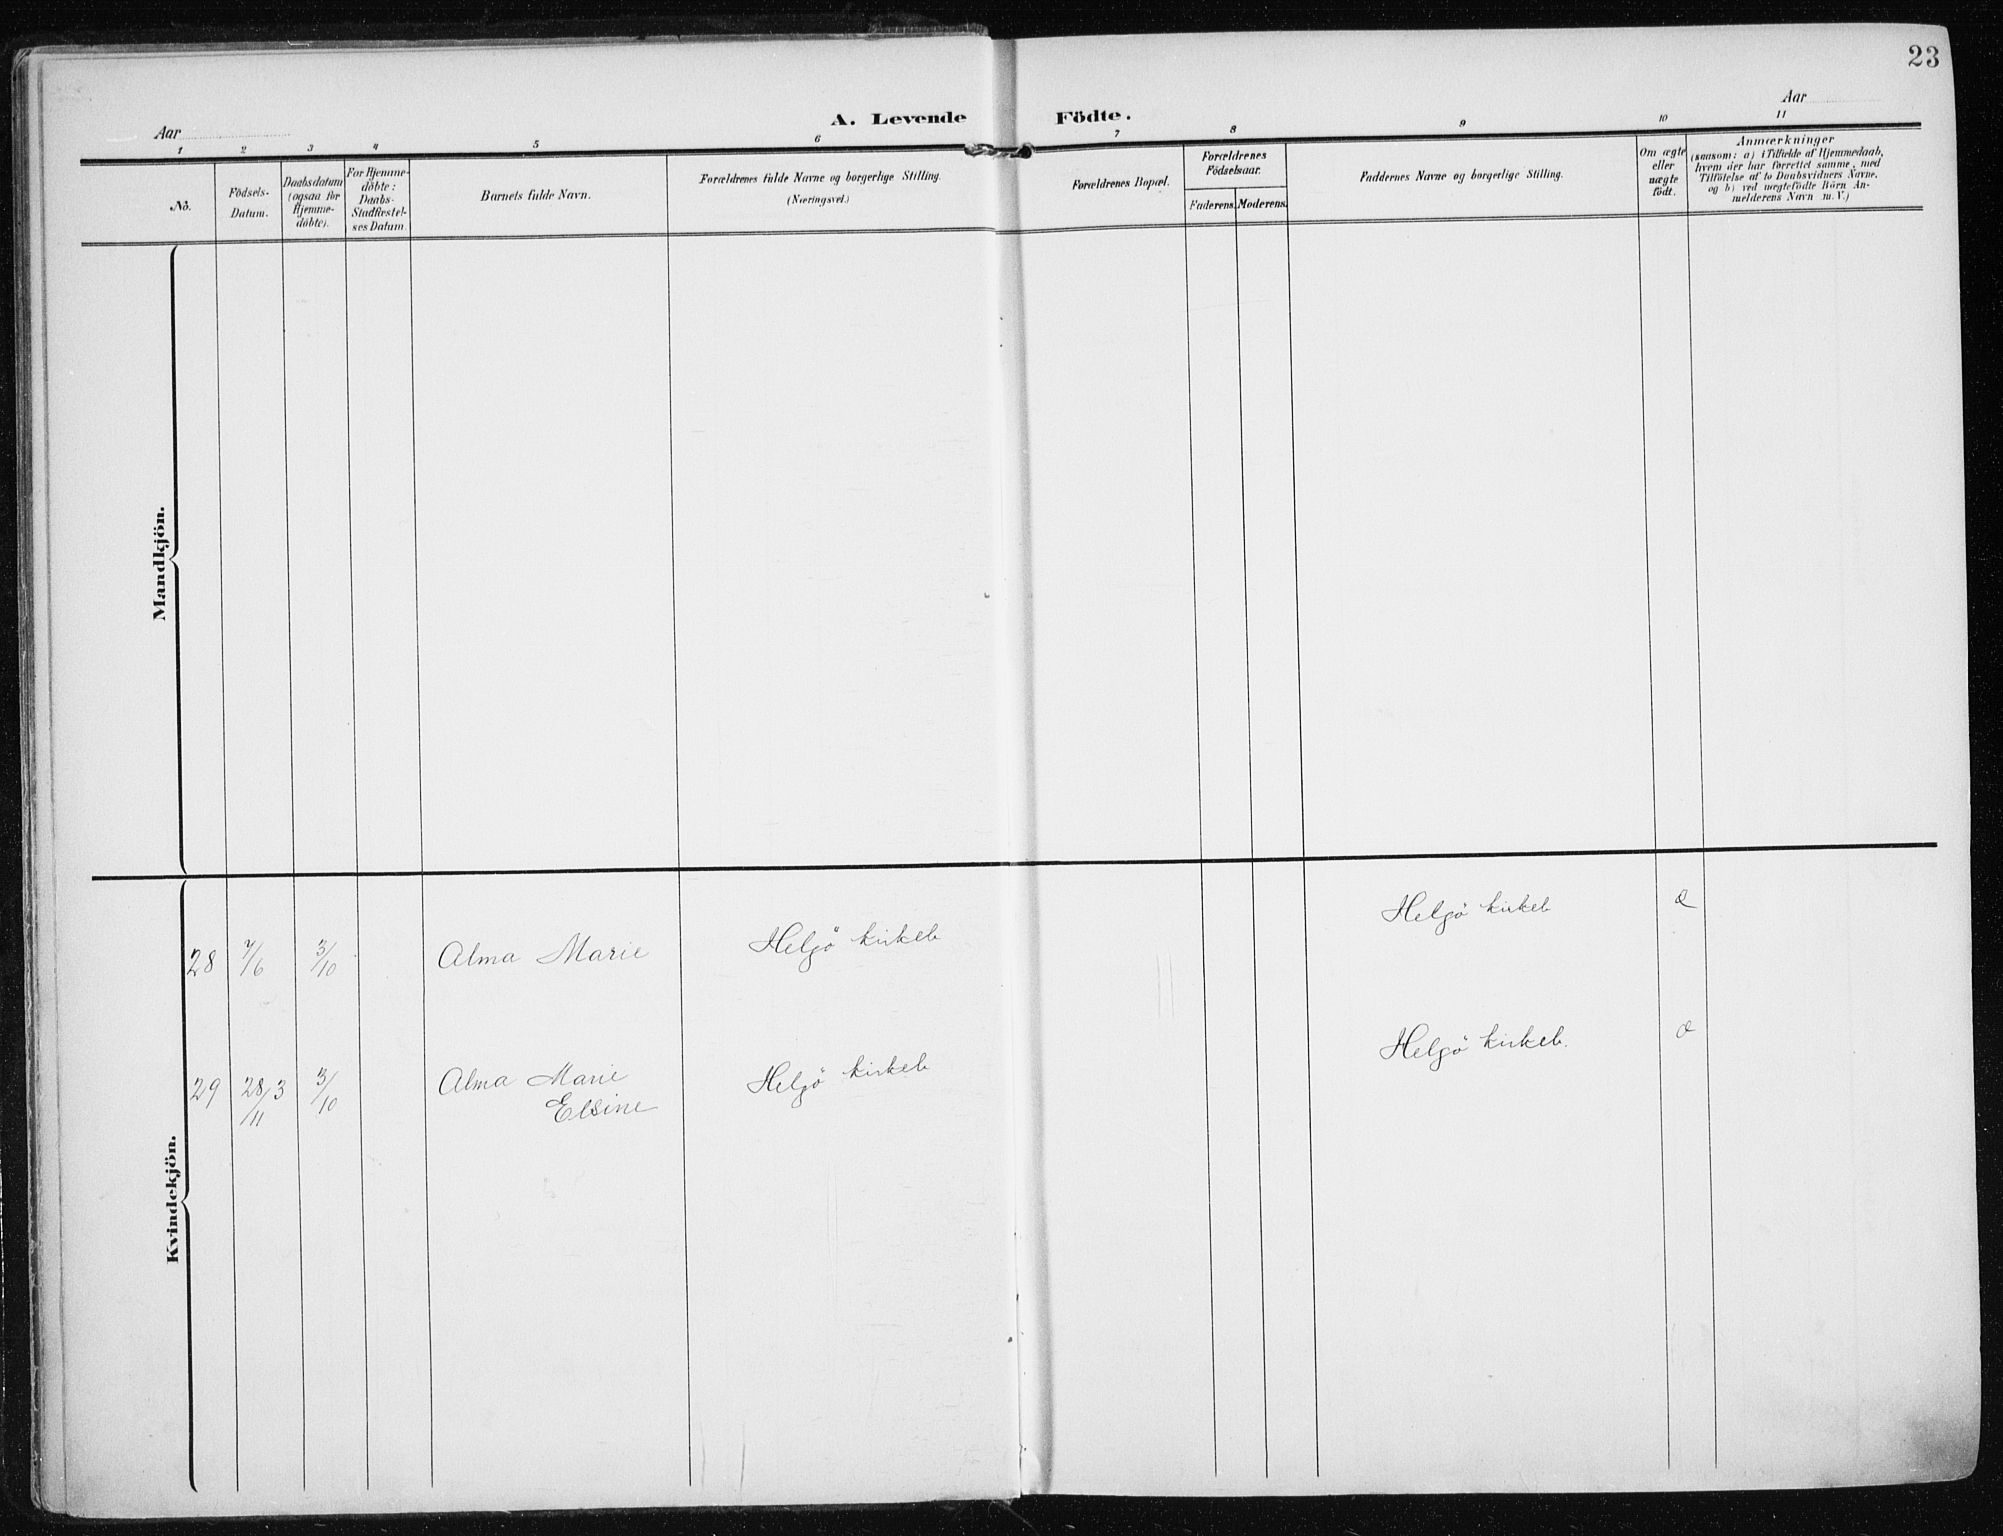 23
Aar
A. Levende Födte.
Aar
1 2 3 4 5 6 7 8 9 10 11
No.
Födsels-
Datum.
Daabsdatum
(ogsaa for
Hjemme-
döbte).
For Hjemme-
döbte:
Daabs-
Stadfæstel-
ses Datum.
Barnets fulde Navn.
Forældrenes fulde Navne og borgerlige Stilling.
(Næringsvei.)
Forældrenes Bopæl.
Forældrenes
Födselsaar.
Faderens. Moderens.
Faddernes Navne og borgerlige Stilling.
Om ægte
eller
uægte
födt.
Anmærkninger
(saasom: a) i Tilfælde af Hjemmedaab,
hvem der har forrettet samme, med
Tilföielse af to Daabsvidners Navne,
og b) ved uægtefödte Börn An-
melderens Navn m. V.)
Mandkjön.
Kvindekjön.
28 7/6 3/10 Alma Marie Helgö kirkeb Helgö kirkeb
29 28/11 3 3/10 Alma Marie Helgö kirkeb Helgö kirkeb.
Elsine